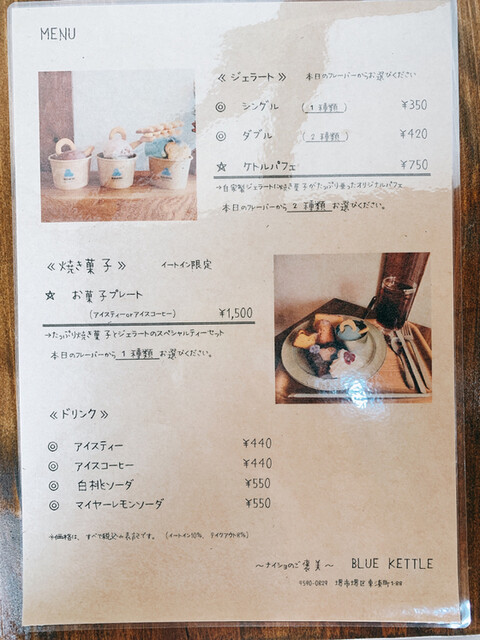 MENU
≪ジェラート≫ 本日のフレーバーからお選びください
◎ シングル (1種類) ¥350
◎ ダブル (2種類) ¥420
☆ ケトルパフェ ¥750
→自家製ジェラートに焼き菓子がたっぷり乗ったオリジナルパフェ
本日のフレーバーから 2種類 お選びください。
≪焼き菓子≫ イートイン限定
☆ お菓子プレート
(アイスティーorアイスコーヒー) ¥1,500
→たっぷり焼き菓子とジェラートのスペシャルティーセット
本日のフレーバーから 1種類 お選びください。
≪ドリンク≫
◎ アイスティー ¥440
◎ アイスコーヒー ¥440
◎ 白桃ソーダ ¥550
◎ マイヤーレモンソーダ ¥550
+価格は、すべて税込み表記です。 (イートイン10%、テイクアウト8%)
～ナイショのご褒美～ BLUE KETTLE
〒590-0829 堺市堺区東湊町